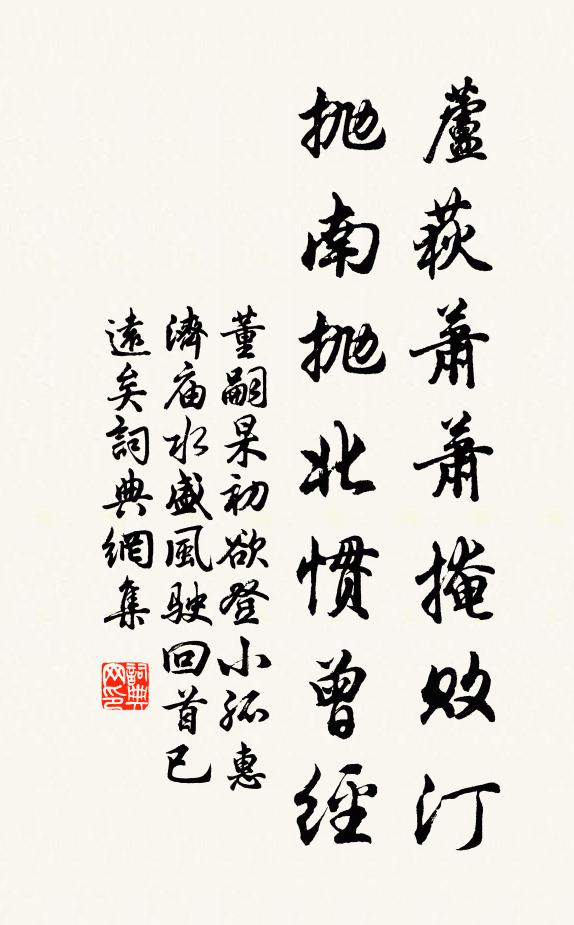 蘆荻蕭蕭掩敗汀
抛南抛北慣曾經
董嗣杲初欲登小孤惠
濟庙水盛風駛回首已
遠矣詞典網集
詞典网印